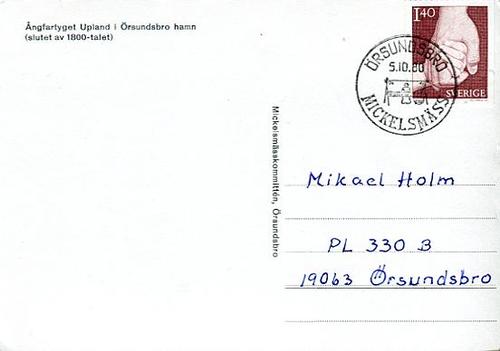 Ångfartyget Upland i Örsundsbro hamn
(slutet av 1800-talet)
1.40
SVERIGE
ÖRSUNDSBRO
5.10.80
MICKELSMÄSS
Mickelsmässkommittén, Örsundsbro
Mikael Holm
PL 330 B
19063 Örsundsbro